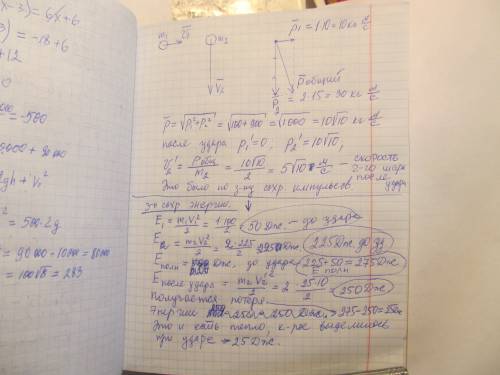 x-3) = 6x+6
) = -18+6
+12
0
= -500
5000 + 90000
2gh + V₁²
² = 500·2g
= 90000 - 10000 = 80000
= 100√8 = 283
m₁ v̄₁
m₂
V̄₂
p̄₁ = 1·10 = 10 кг м/с
p̄ общий
p̄₂ = 2·15 = 30 кг м/с
p̄ = √p₁² + p₂² = √100+900 = √1000 = 10√10 кг м/с
после удара p₁' = 0, p₂' = 10√10;
V₂' = p общ/m₂ = 10√10/2 = 5√10 м/с — скорость 2-го шара после удара
Это было по з-ну сохр. импульсов
з-н сохр энергии.
E₁ = m₁V₁²/2 = 1·100/2 = 50 Дж. - до удара
E₂ = m₂V₂²/2 = 2·225/2 = 225 Дж 225 Дж. до уд
E полн = Дж. до удара 225+50 = 275 Дж E полн
E после удара = m₂V₂'²/2 = 2·25·10/2 = 250 Дж
Получается потеря
Энергии 250 Дж. → 275-250 =
Это и есть тепло, к-рое выделилось
при ударе → 25 Дж.